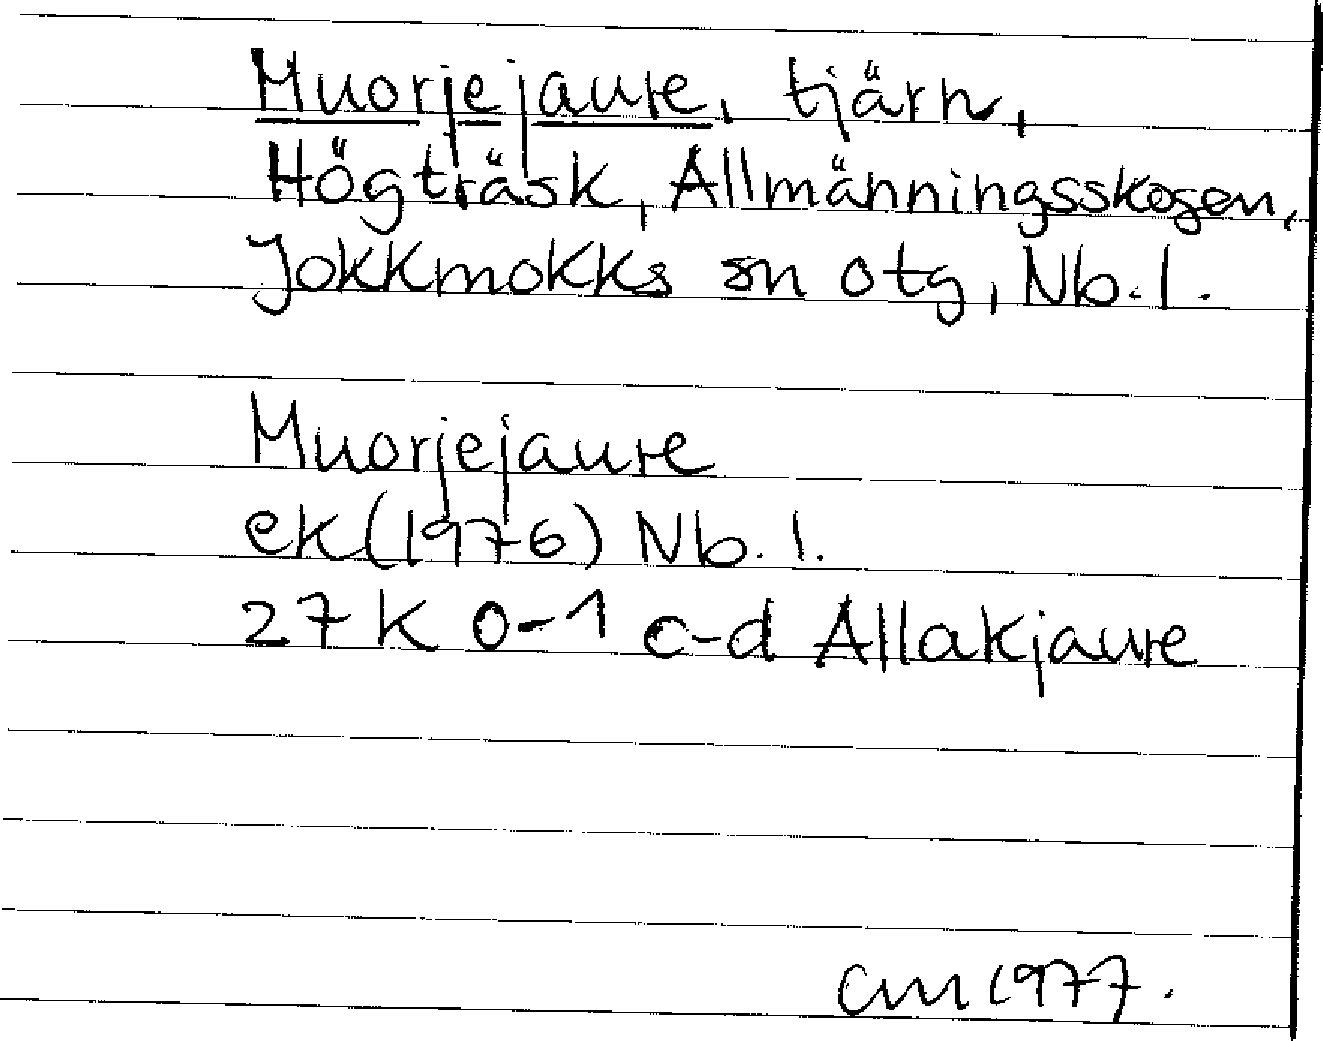 Muorjejaure, tjärn,
Högträsk, Allmänningsskogen,
Jokkmokks sn otg, Nb. l.
Muorjejaure
ek (1976) Nb. l.
27 K 0-1 c-d Allakjaure
cm 1977.